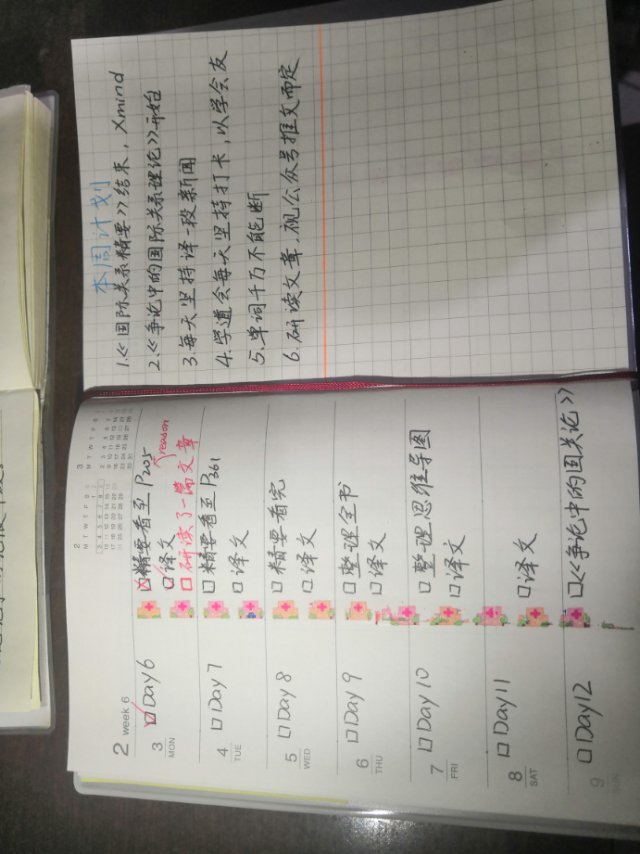 本周计划
1.《国际关系精要》结束，Xmind
2.《争论中的国际关系理论》开始
3.每天坚持译一段新闻
4.学道会每天坚持打卡，以学会友
5.单词千万不能断
6.研读文章，视公众号推文而定
2 week 6
2 3
M T W T F S S
M T W T F S S
3 MON
Day6
精要看至P205 reason
译文
研读了一篇文章
4 TUE
Day7
精要看至P361
译文
5 WED
Day8
精要看完
译文
6 THU
Day9
整理全书
译文
7 FRI
Day10
整理思维导图
译文
8 SAT
Day11
译文
9 SUN
Day12
《争论中的国关论》